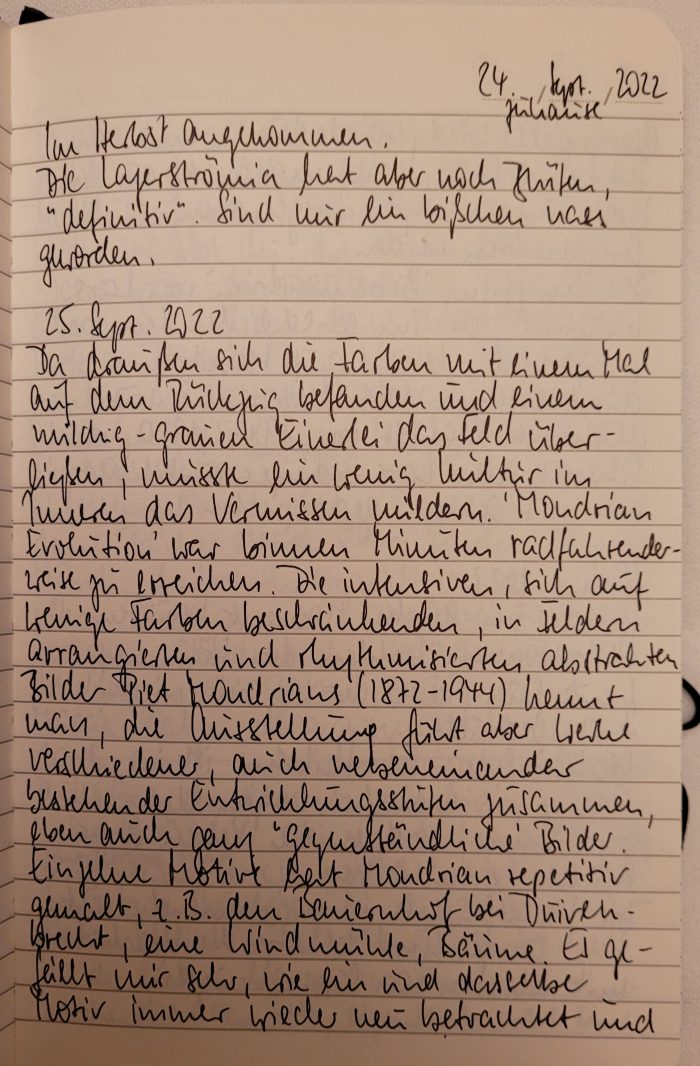 24. Sept. 2022
zuhause
Im Herbst angekommen.
Die Lagerströmia hat aber noch Blüten,
"definitiv". Sind mir ein bißchen nass
geworden.
25. Sept. 2022
Da draußen sich die Farben mit einem Mal
auf dem Rückzug befanden und einem
milchig-grauen Einerlei das Feld über-
ließen, musste ein wenig Kultur im
Inneren das Vermissen mildern. 'Mondrian
Evolution' war binnen Minuten radfahrender-
weise zu erreichen. Die intensiven, sich auf
wenige Farben beschränkenden, in Feldern
arrangierten und rhythmisierten abstrakten
Bilder Piet Mondrians (1872-1944) kennt
man, die Ausstellung führt aber Werke
verschiedener, auch nebeneinander
bestehender Entwicklungsstufen zusammen,
eben auch ganz "gegenständliche" Bilder.
Einzelne Motive hat Mondrian repetitiv
gemalt, z.B. den Bauernhof bei Duiven-
drecht, eine Windmühle, Bäume. Es ge-
fällt mir sehr, wie ein und dasselbe
Motiv immer wieder neu betrachtet und